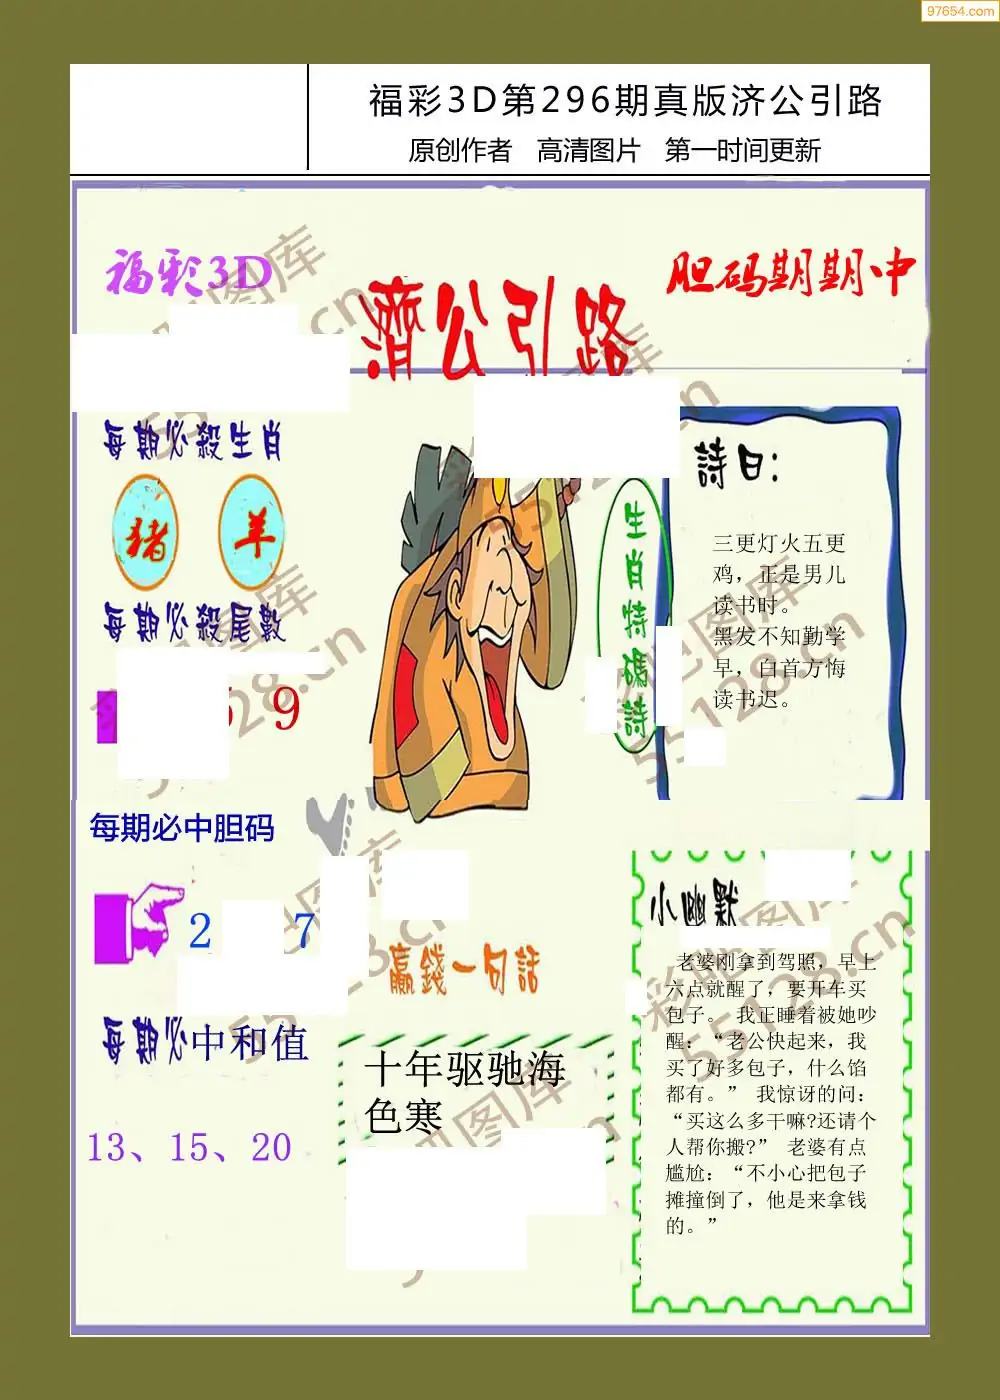 97654.com
福彩3D第296期真版济公引路
原创作者 高清图片 第一时间更新
福彩3D
濟公引路
胆码期期中
每期必殺生肖
猪 羊
每期必殺尾數
9
每期必中胆码
2 7
每期必中和值
13、15、20
生肖特碼詩
詩曰：
三更灯火五更
鸡，正是男儿
读书时。
黑发不知勤学
早，白首方悔
读书迟。
赢錢一句話
十年驱驰海
色寒
小幽默
老婆刚拿到驾照，早上
六点就醒了，要开车买
包子。 我正睡着被她吵
醒：“老公快起来，我
买了好多包子，什么馅
都有。” 我惊讶的问：
“买这么多干嘛?还请个
人帮你搬?” 老婆有点
尴尬：“不小心把包子
摊撞倒了，他是来拿钱
的。”
彩吧图库
55128.cn